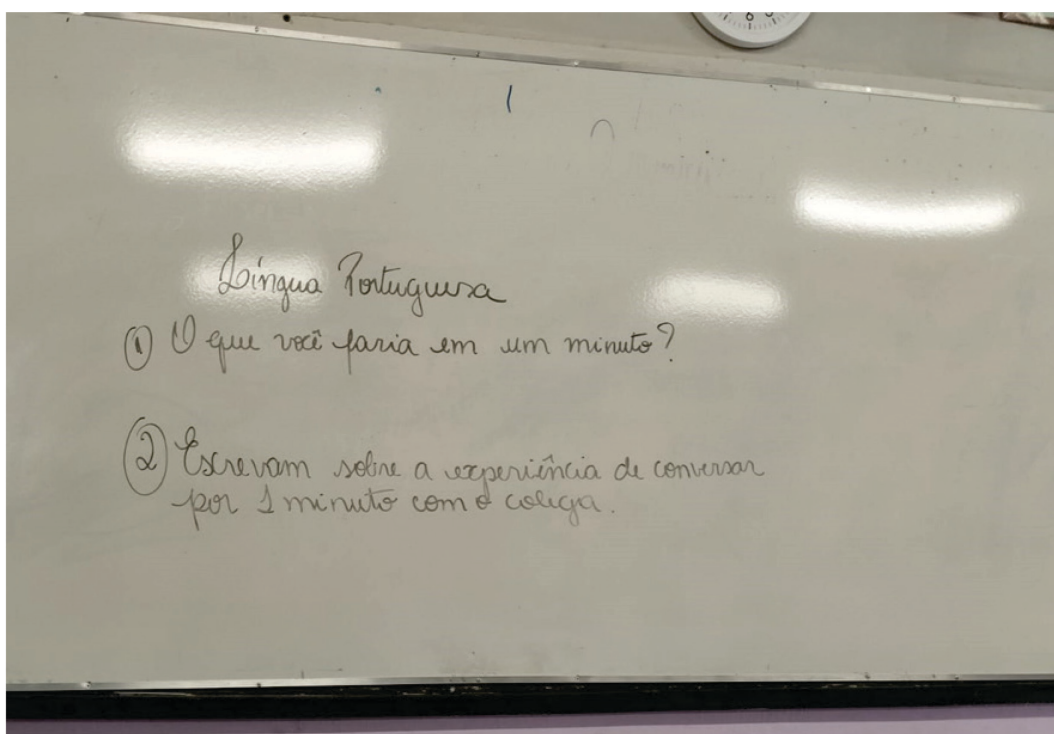 Língua Portuguesa
① O que você faria em um minuto?
② Escrevam sobre a experiência de conversar
por 1 minuto com o colega.